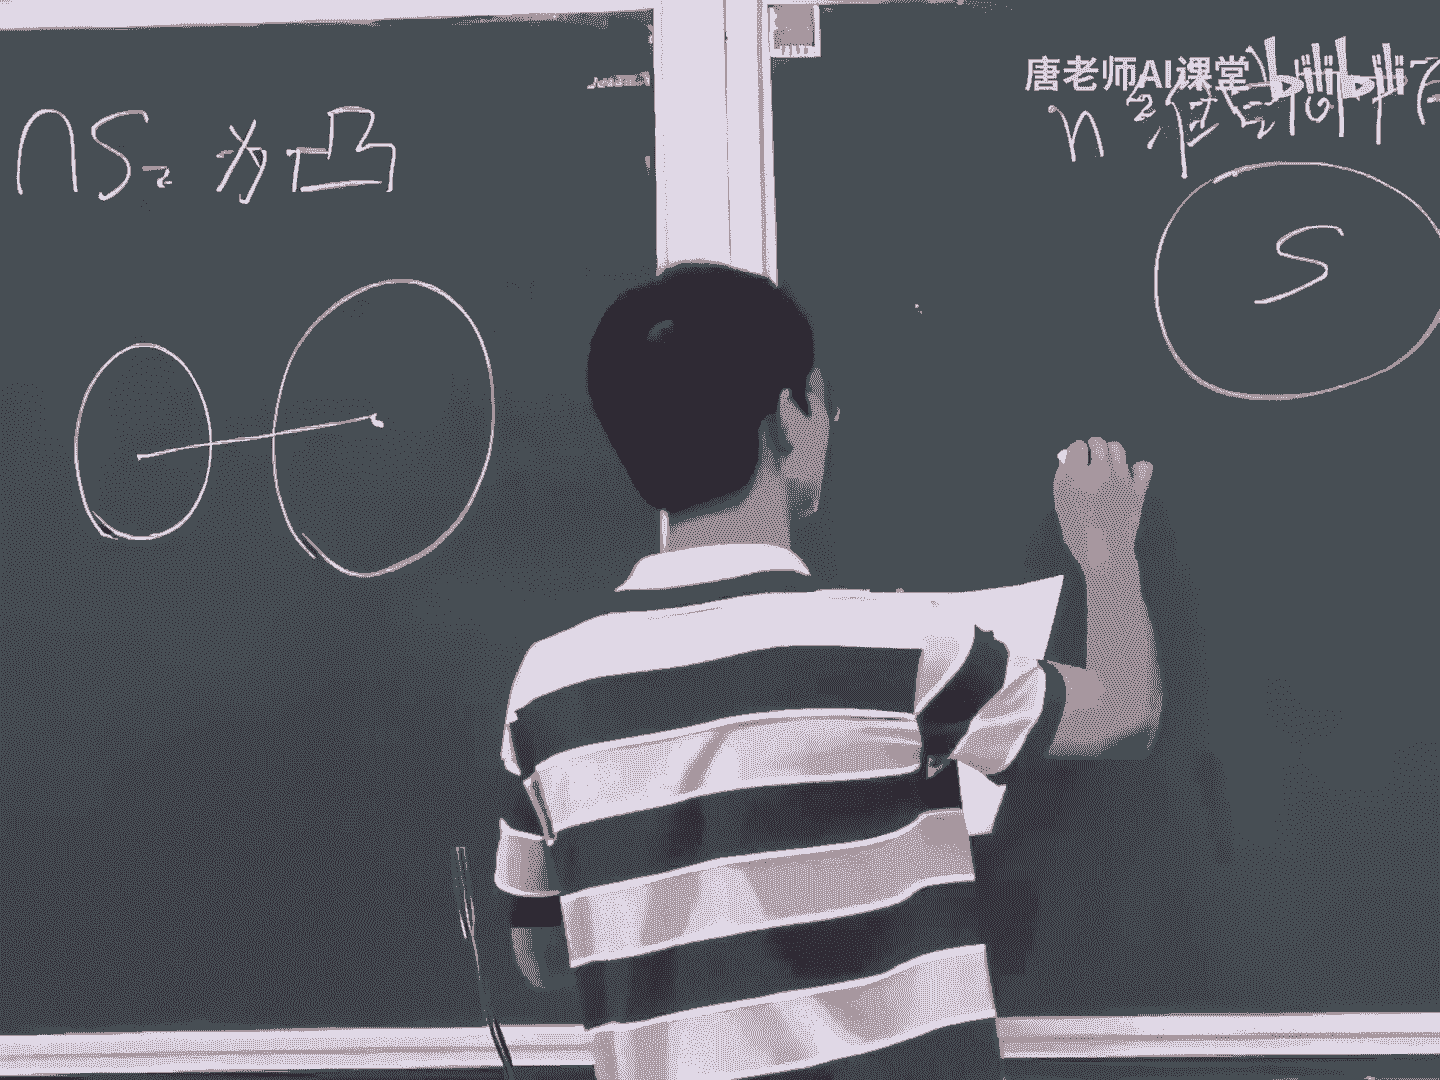 ∩S₂ 为凸
唐老师AI课堂 bilibili
n 维空间
S